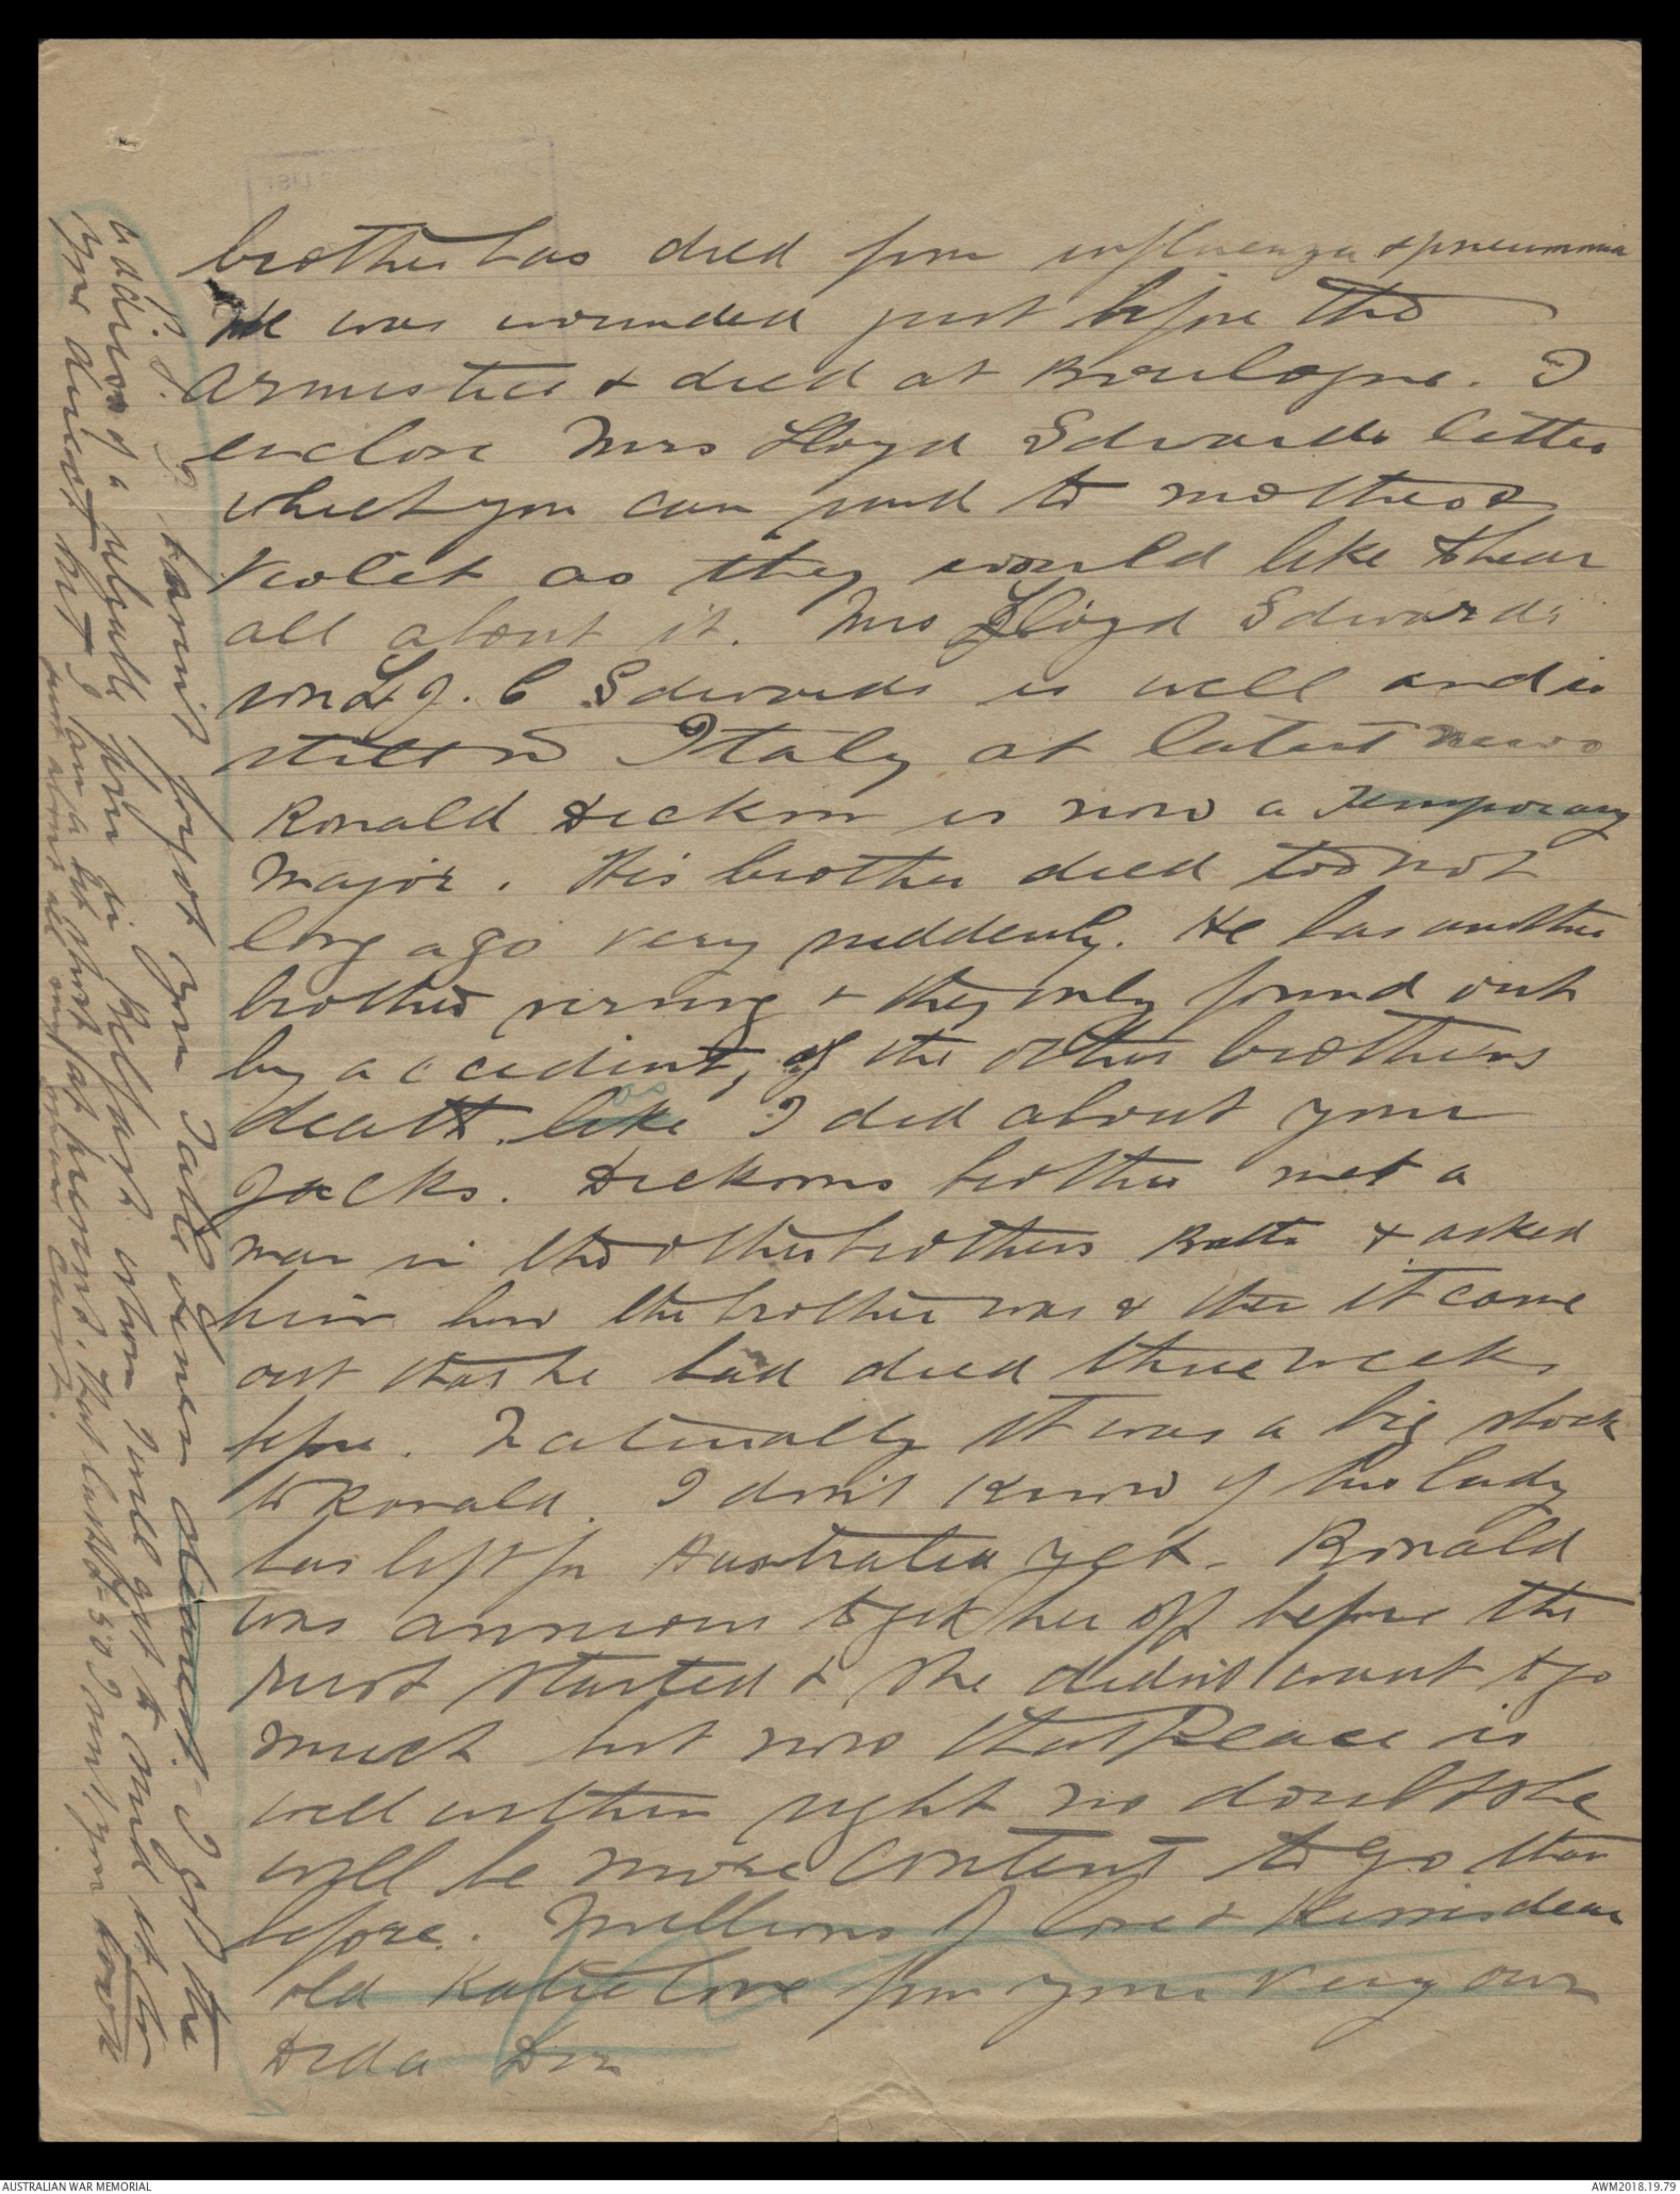 brother has died from influenza & pneumonia
He was wounded just before the
Armistice & died at Boulogne. I
enclose Mrs Lloyd Edwards letter
which you can send to mother &
Violet as they would like to hear
all about it. Mrs Lloyd Edwards
son Lt J. C Edwards is well and is
still in Italy at latest news
Ronald Dickson is now a Temporary
Major. His brother died too not
long ago very suddenly. He has another
brother serving & they only found out
by accident, of the other brothers
death. like as I did about your
Jacks. Dicksons brother met a
man in the other brothers Battn & asked
him how the brother was & then it came
out that he had died three weeks
before. Naturally it was a big shock
to Ronald. I don't know if his lady
has left for Australia yet. Ronald
was anxious to get her off before the
rush started & she didn't want to go
much but now that Peace is
well within sight no doubt she
will be more content to go than
before. Millions of love & kisses dear
old Katie love from your very own
Dida Don
P.S. I havn't forgot your Table Linen dearest. I got the
address of a reliable firm in Belfast whom I will get to send it to
you direct but I am a bit short at present. That lasts so I sent you